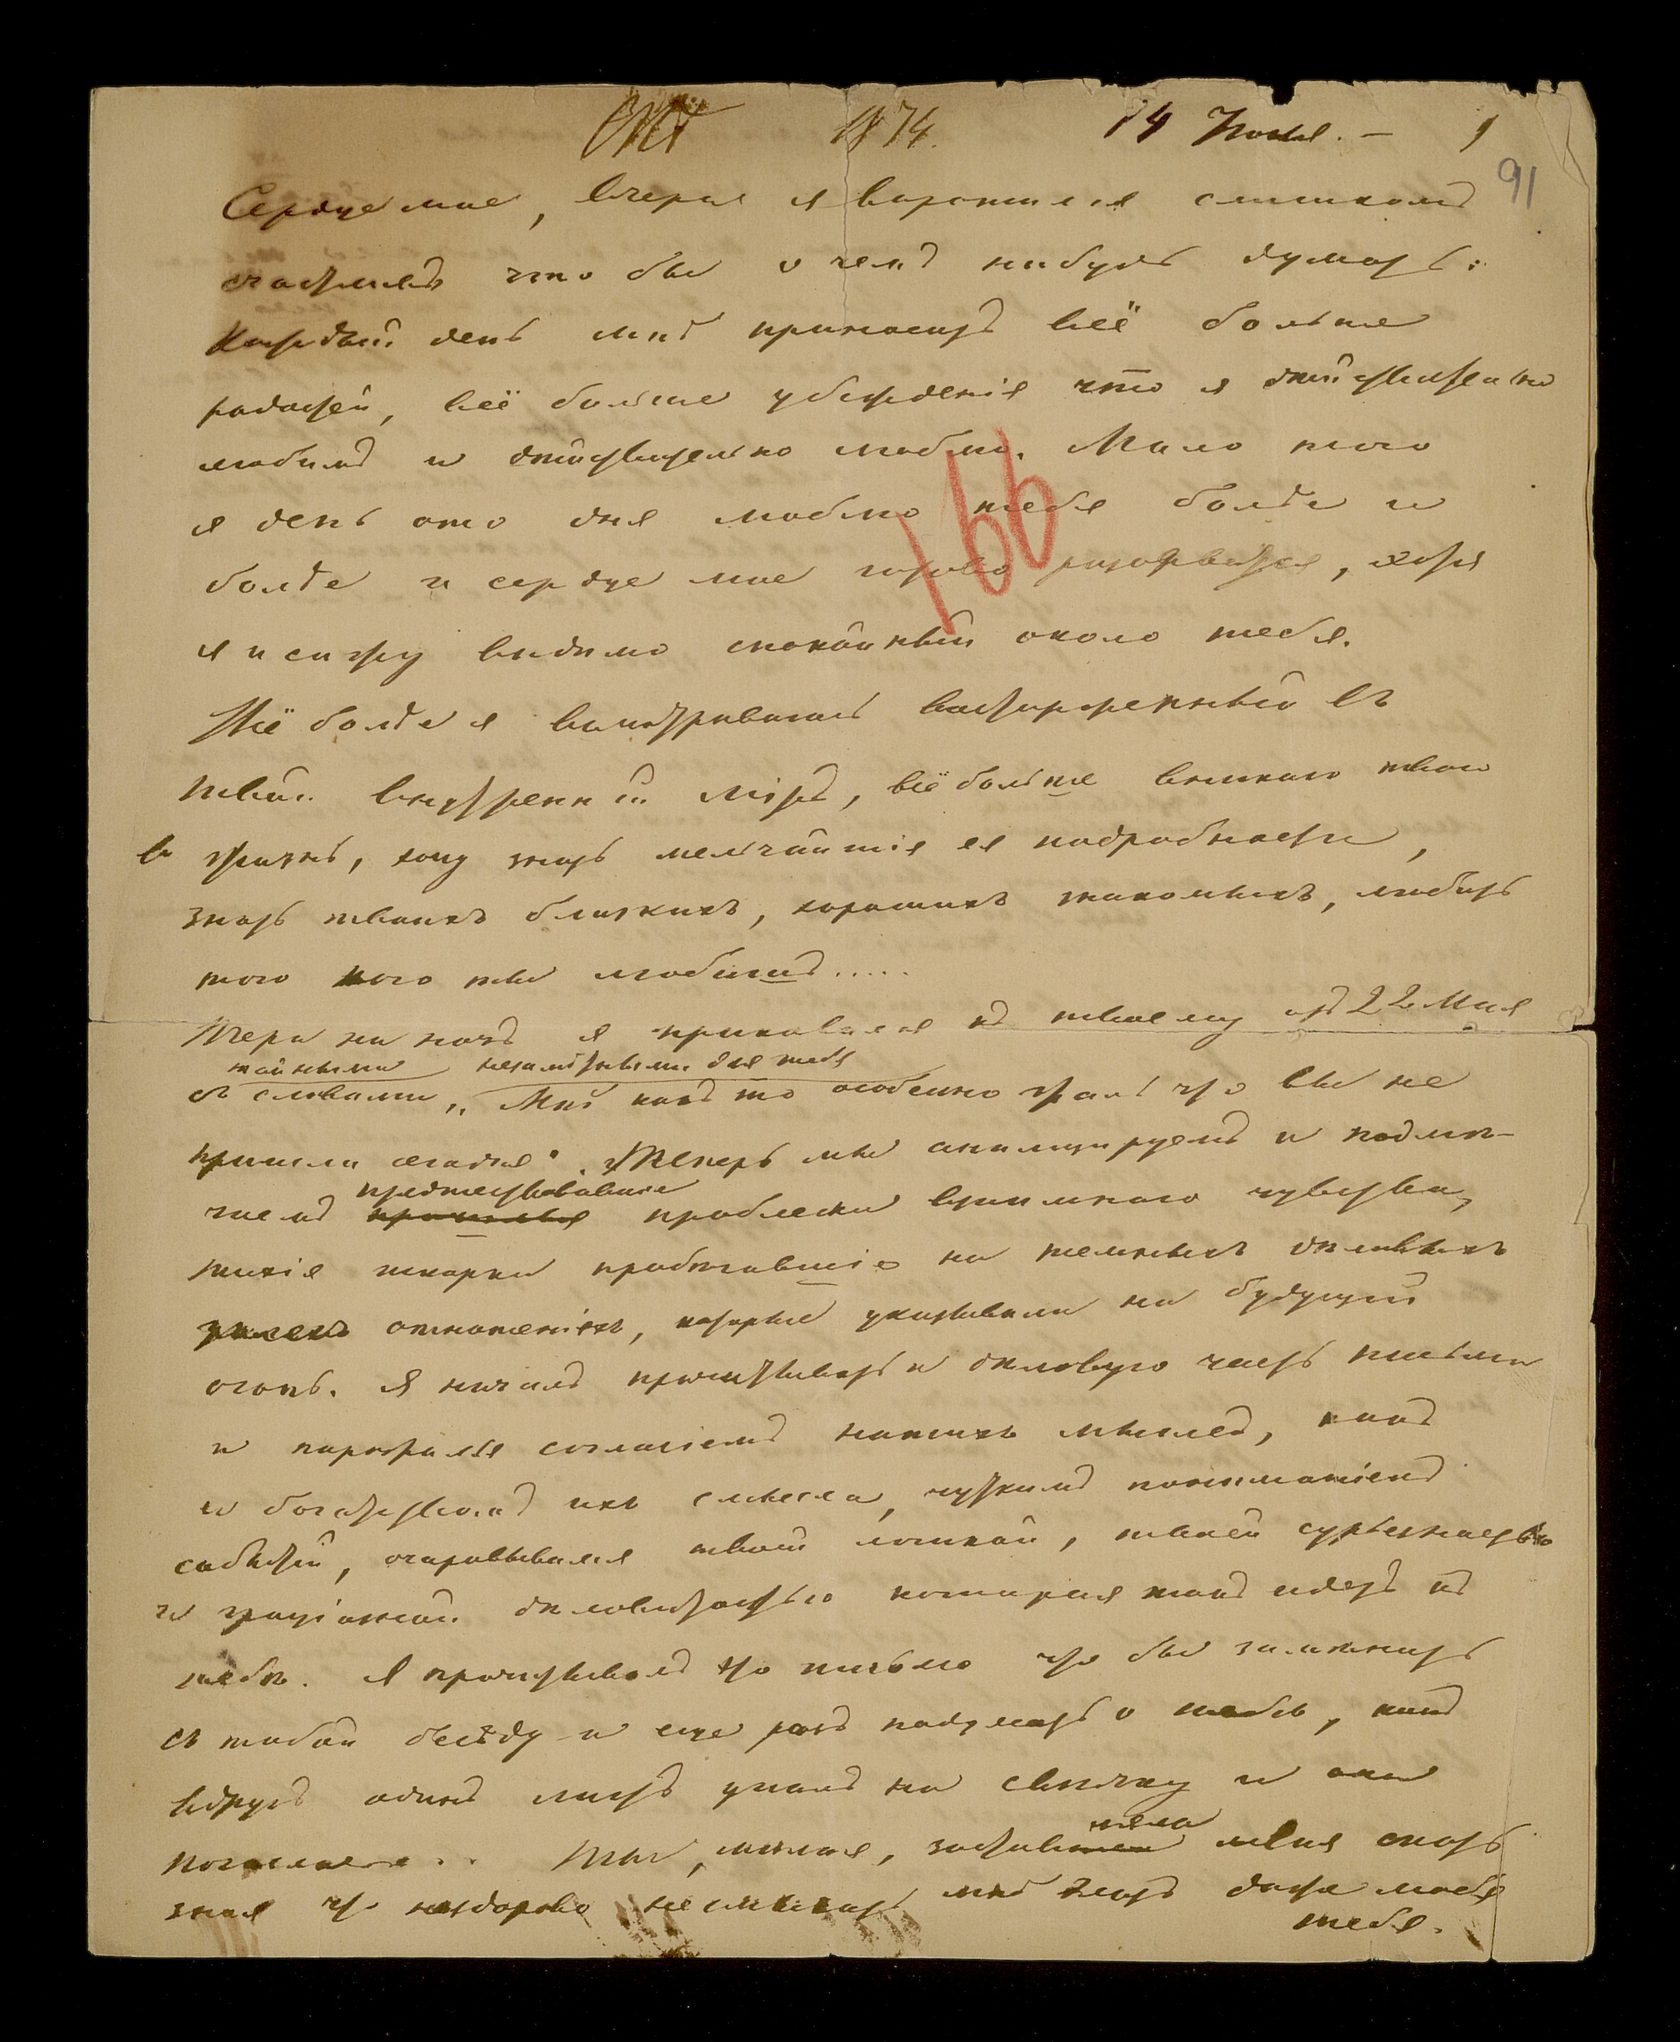 1874. 14 Июня. — 1
91
Сердце мое, вчера я воротился слишкомъ
счастливъ что бы о чемъ нибудь думать:
Каждый день мнѣ приноситъ всё больше
радостей, всё больше убѣжденія что я дѣйствительно
любимъ и дѣйствительно люблю. Мало того
я день ото дня люблю тебя болѣе и
166
болѣе и сердце мое готово разорваться, хотя
я и сижу видимо спокойный около тебя.
Всё болѣе я всматриваюсь восторженный въ
твой внутренній міръ, всё больше вникаю твою
въ жизнь, хочу знать мельчайшія ея подробности,
знать твоихъ близкихъ, хорошихъ знакомыхъ, любить
того кого ты любишь.....
Вчера на ночь я приковался къ твоему отъ 22 Мая
тайными незамѣтными для тебя
съ словами „Мнѣ какъ то особенно жаль что вы не
пришли сегодня“. Теперь мы анализируемъ и подмѣ-
предшествовавшіе
чаемъ проблески взаимнаго чувства,
тихія искорки пробѣгавшіе на темныхъ дѣловыхъ
отношеніяхъ, которые указывали на будущій
огонь. Я началъ прочитывать и дѣловую часть письма
и поражался согласіемъ нашихъ мыслей, какъ
и богатствомъ ихъ смысла, чуткимъ пониманіемъ
событій, очаровывался твоей логикой, твоей сурьезностью
и граціозной дѣловитостью которая такъ идетъ къ
тебѣ. Я прочитывалъ это письмо что бы замѣнить
съ тобой бесѣду и еще разъ подумать о тебѣ, какъ
вдругъ одинъ листъ упалъ на свѣчку и она
погасла... Ты, милая, заставляла меня спать
зная что нездорово мнѣ даже любя
тебя.